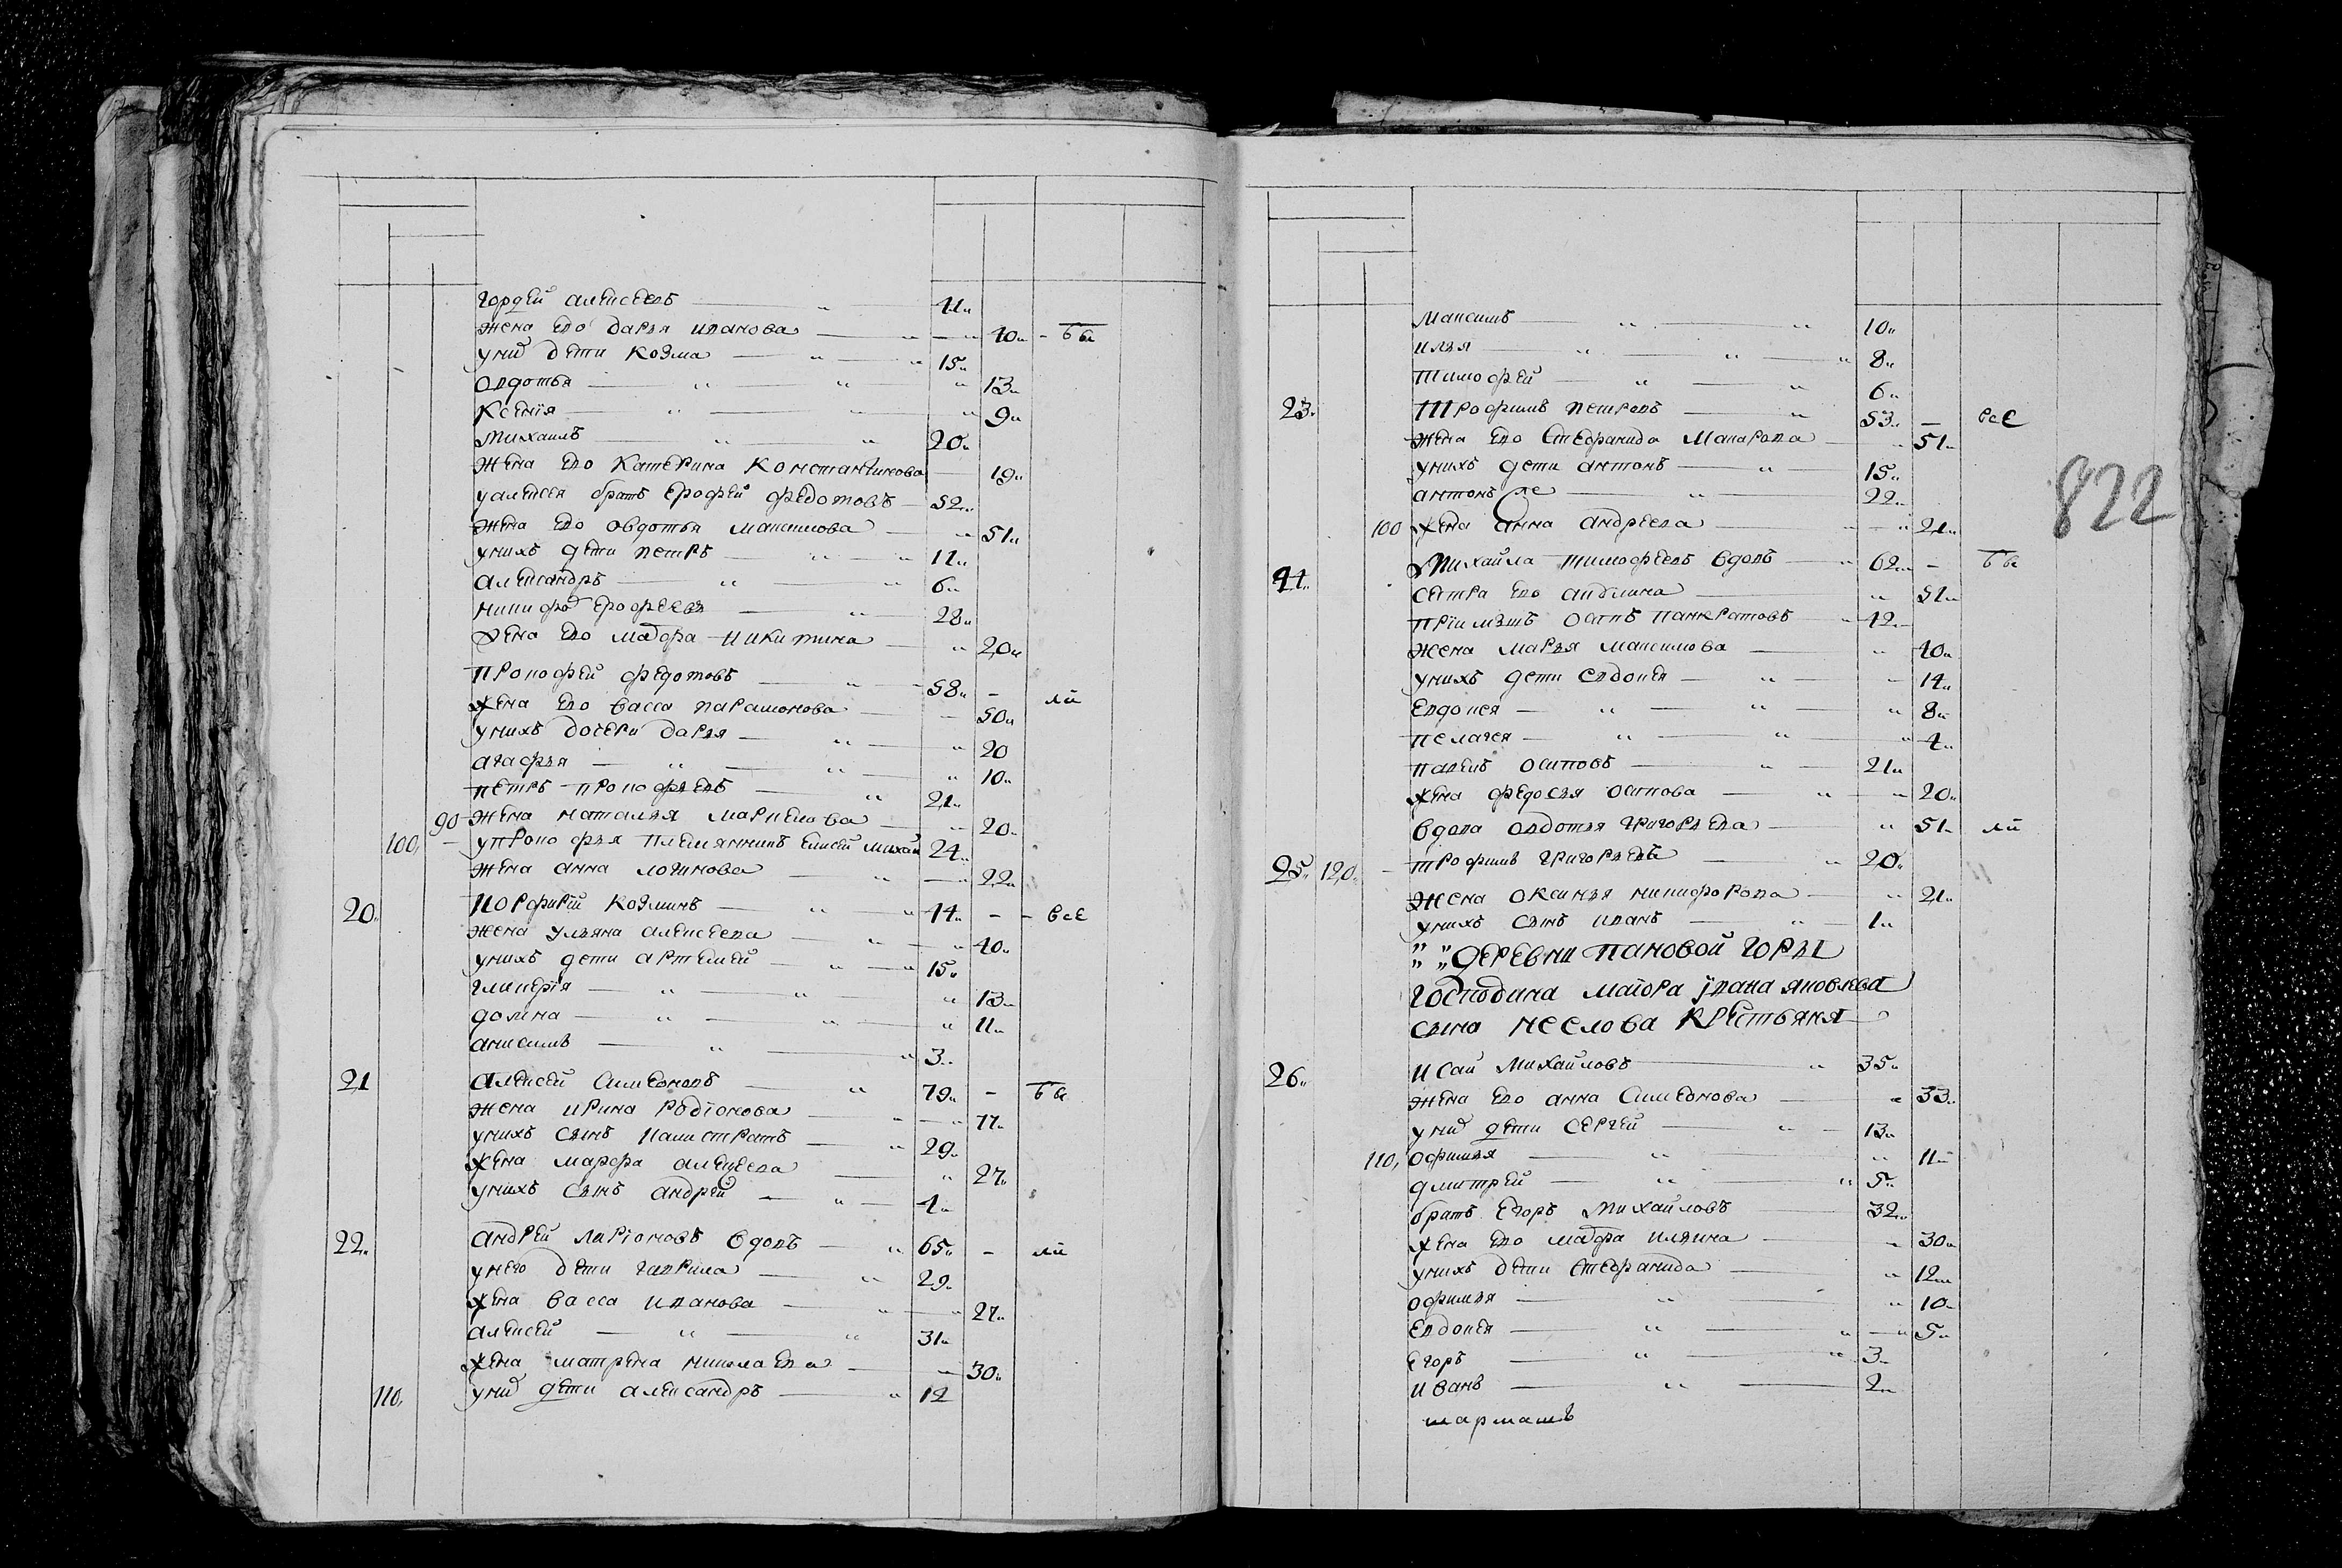 гордей алексеевъ 41
жена его дарья иванова 40 - бы
у них дети козма 15
овдотья 13
ксения 9
михаилъ 20
жена его катерина константинова 19
у алексея братъ ерофей федотовъ 52
жена его овдотья максимова 51
у нихъ дети петръ 11
александръ 6
никифоръ ерофеевъ 28
жена его мавра никитина 20
прокофей федотовъ 58 - ли
жена его васса парамонова 50
у нихъ дочери дарья 20
агафья 10
петръ прокофьевъ 21
90 жена наталья маркелова 20
100 у прокофья племянникъ елисей михай 24
жена анна логинова 22
20 порфирій козминъ 44 - - все
жена ульяна алексеева 40
у нихъ дети артемей 15
гликерія 13
домна 11
анисимъ 3
21 алексей симеоновъ 79 - бы
жена ирина родіонова 77
у нихъ сынъ калистратъ 29
жена марфа алексеева 27
у нихъ сынъ андрей 4
22 андрей ларіоновъ вдовъ 65 - ли
у него дети гаврила 29
жена васса иванова 27
алексей 31
жена матрена николаева 30
110 у них дети александръ 12
максимъ 10
илья 8
тимофей 6
23 трофимъ петровъ 53 - все
жена его стефанида макарова 51
у нихъ дети антонъ 15
антонъ же 22
100 жена анна андреева 21
михайла тимофеевъ вдовъ 62 - бы
сестра его акилина 51
пріимышъ осипъ панкратовъ 42
жена марья максимова 40
у нихъ дети евдокея 14
евдокея 8
пелагея 4
павелъ осиповъ 21
жена федосья осипова 20
вдова овдотья григорьева 51 ли
25 120 трофимъ григорьевъ 20
жена оксинья никифорова 21
у нихъ сынъ иванъ 1
деревни пановой горы
господина маіора івана яковлева
сына неелова крестьяня
26 исай михайловъ 35
жена его анна симеонова 33
у них дети сергей 13
110 офимья 11
дмитрей 5
братъ егоръ михайловъ 32
жена его мавра ильина 30
у нихъ дети стефанида 12
офимья 10
евдокея 5
егоръ 3
иванъ 2
822